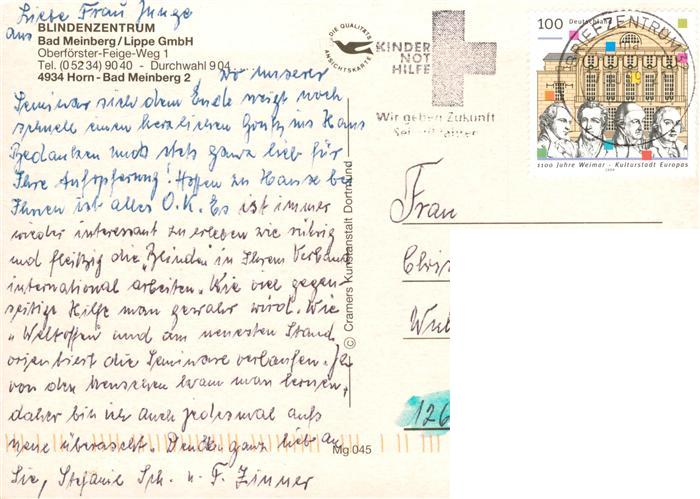 Liebe Frau Junge
aus
BLINDENZENTRUM
Bad Meinberg/Lippe GmbH
Oberförster-Feige-Weg 1
Tel. (0 52 34) 90 40 - Durchwahl 9 04
4934 Horn-Bad Meinberg 2
, wo unser
Seminar sich dem Ende neigt noch
schnell einen herzlichen Gruß ins Haus
Bedanken uns stets ganz lieb für
Ihre Aufopferung! Hoffen zu Hause bei
Ihnen ist alles O.K. Es ist immer
wieder interessant zu erleben wie rührig
und fleißig die "Blinden" in Ihrem Verband
international arbeiten. Wie viel gegen-
seitige Hilfe man gewahr wird. Wie
"Weltoffen" und am neuesten Stand
orientiert die Seminare verlaufen.
von den Menschen kann man lernen,
daher bin ich auch jedesmal aufs
neue überrascht. Denke ganz lieb an
Sie, Stefanie Sch. u. F. Zinner
DIE QUALITÄTS
ANSICHTSKARTE
KINDER
NOT
HILFE
Wir geben Zukunft
BRIEFZENTRUM
100 Deutschland
1100 Jahre Weimar - Kulturstadt Europas
1999
© Cramers Kunstanstalt Dortmund
Mg 045
Frau
Chris
126